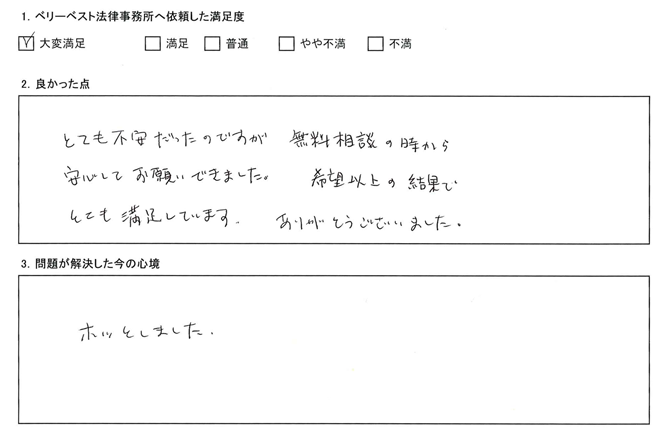 1. ベリーベスト法律事務所へ依頼した満足度
☑ 大変満足 □ 満足 □ 普通 □ やや不満 □ 不満
2. 良かった点
とても不安だったのですが 無料相談の時から
安心してお願いできました。 希望以上の結果で
とても満足しています. ありがとうございました。
3. 問題が解決した今の心境
ホッとしました.